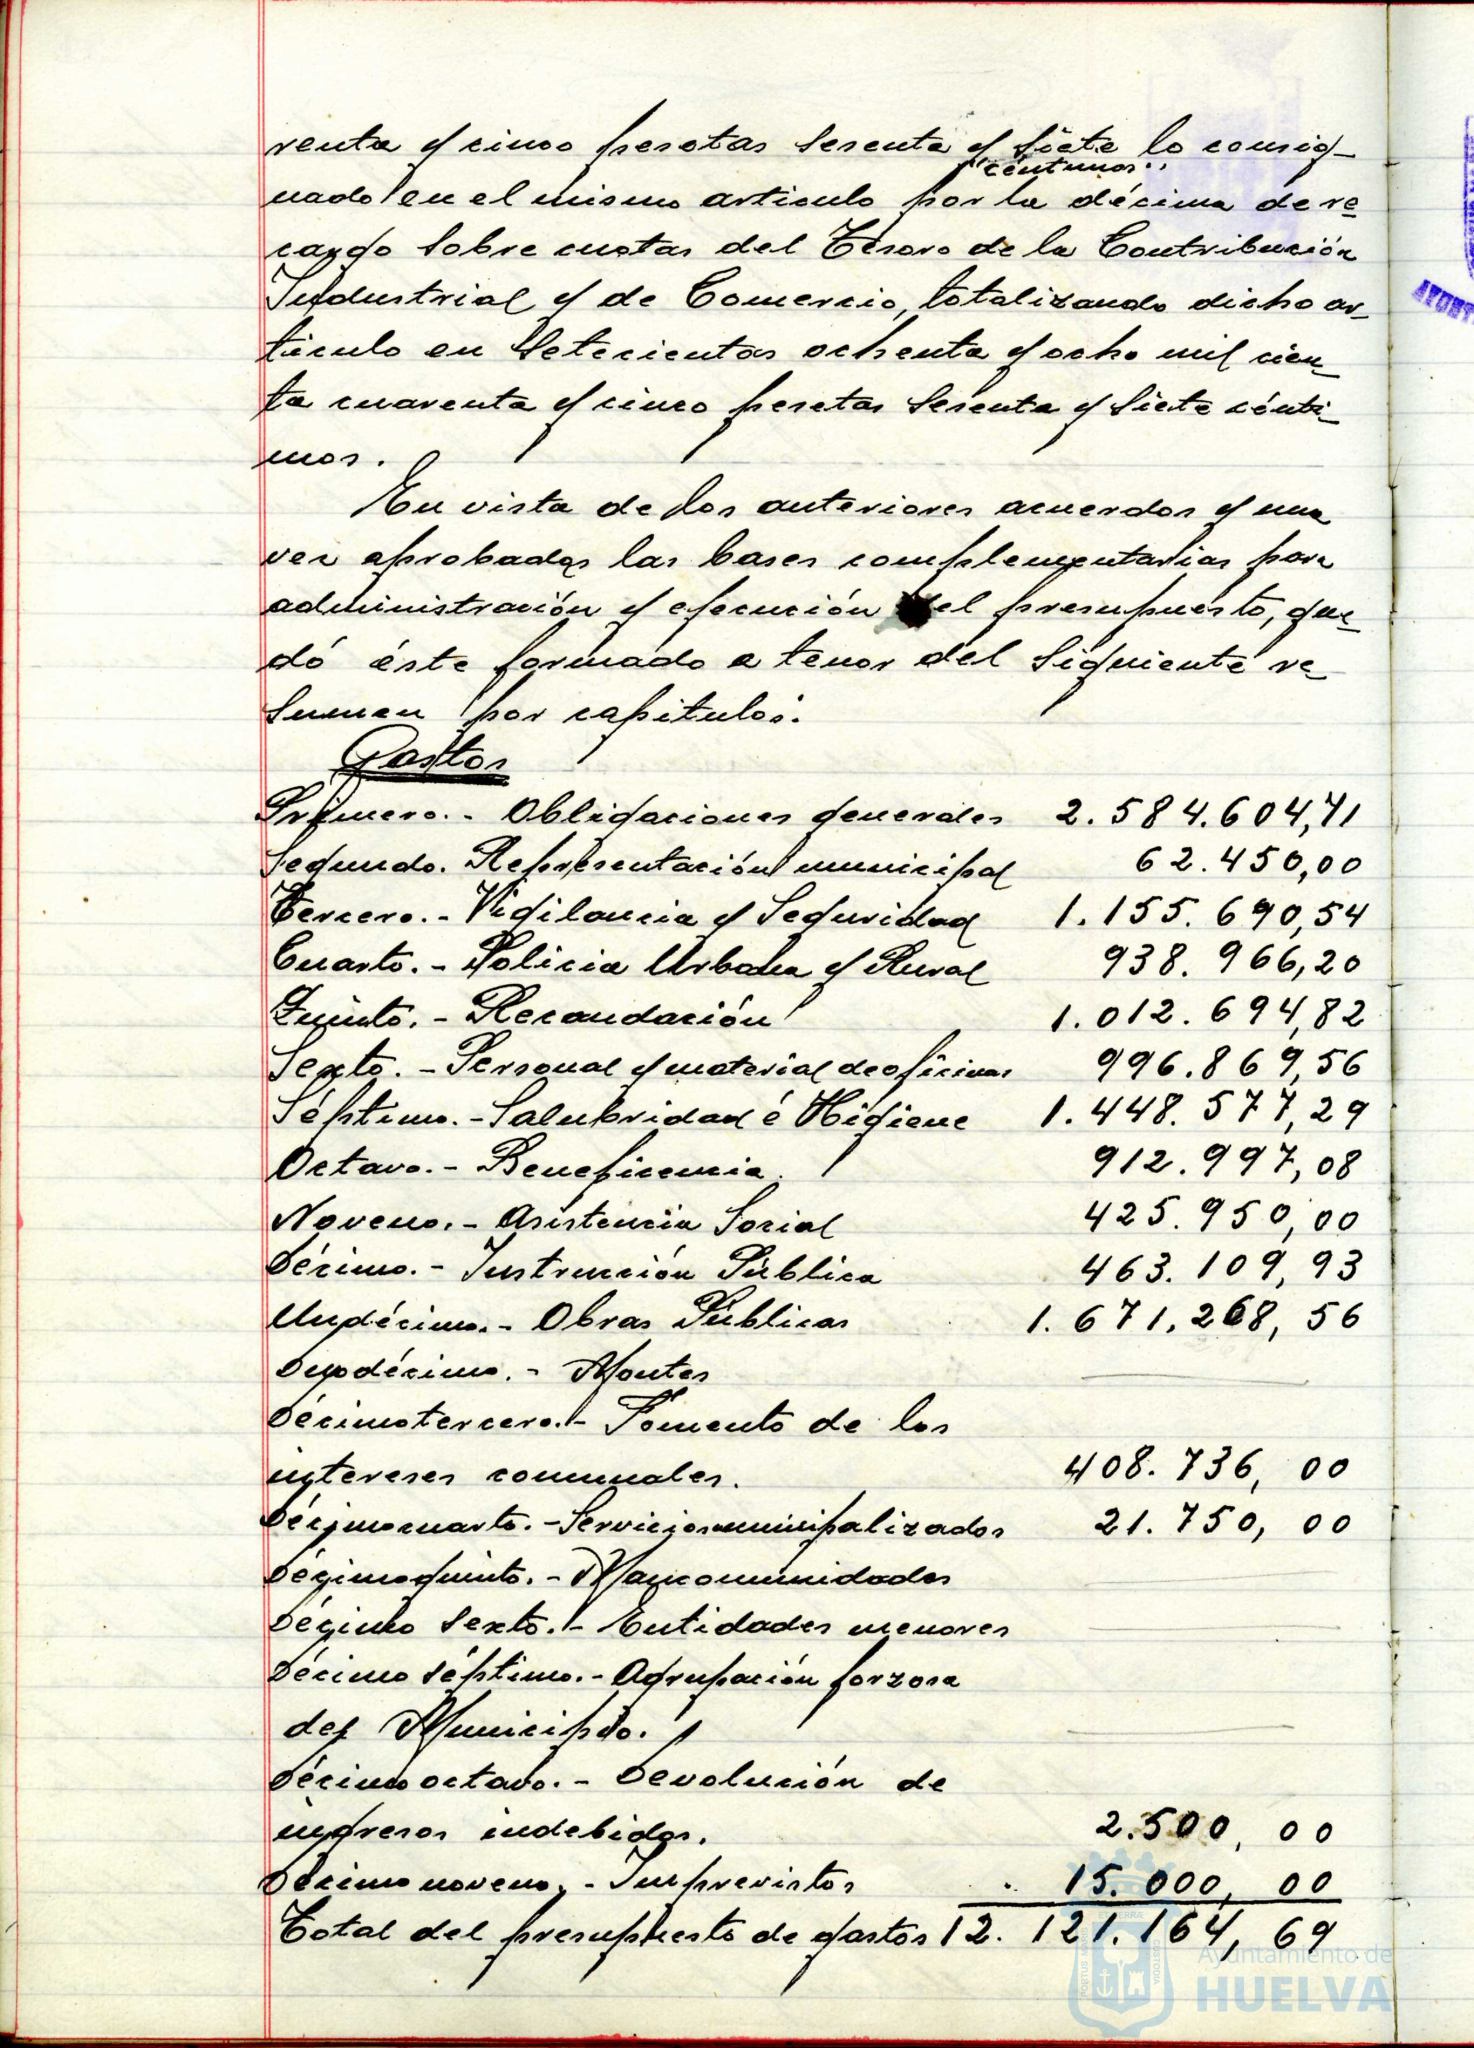 renta y cinco pesetas sesenta y siete lo consig-
céntimos
nado en el mismo artículo por la décima de re-
cargo sobre cuotas del Tesoro de la Contribución
Industrial y de Comercio, totalizando dicho ar-
tículo en setecientas ochenta y ocho mil cien-
ta cuarenta y cinco pesetas sesenta y siete cénti-
mos.
En vista de los anteriores acuerdos y una
vez aprobadas las bases complementarias para
administración y ejecución del presupuesto, que-
dó éste formado a tenor del siguiente re-
sumen por capítulos:
Gastos
Primero.- Obligaciones generales 2.584.604,71
Segundo. Representación municipal 62.450,00
Tercero.- Vigilancia y Seguridad 1.155.690,54
Cuarto.- Policia Urbana y Rural 938.966,20
Quinto.- Recaudación 1.012.694,82
Sexto.- Personal y material de oficinas 996.869,56
Séptimo.- Salubridad é Higiene 1.448.577,29
Octavo.- Beneficencia. 912.997,08
Noveno.- Asistencia Social 425.950,00
Décimo.- Instrucción Pública 463.109,93
Undécimo.- Obras Públicas 1.671.268,56
Duodécimo.- Montes
Décimotercero.- Fomento de los
intereses comunales. 408.736,00
Décimocuarto.- Servicios municipalizados 21.750,00
Décimoquinto.- Mancomunidades
Décimo sexto.- Entidades menores
Décimo séptimo.- Agrupación forzosa
del Municipio.
Décimo octavo.- Devolución de
ingresos indebidos. 2.500,00
Décimo noveno.- Imprevistos 15.000,00
Total del presupuesto de gastos 12.121.164,69
Ayuntamiento de
HUELVA